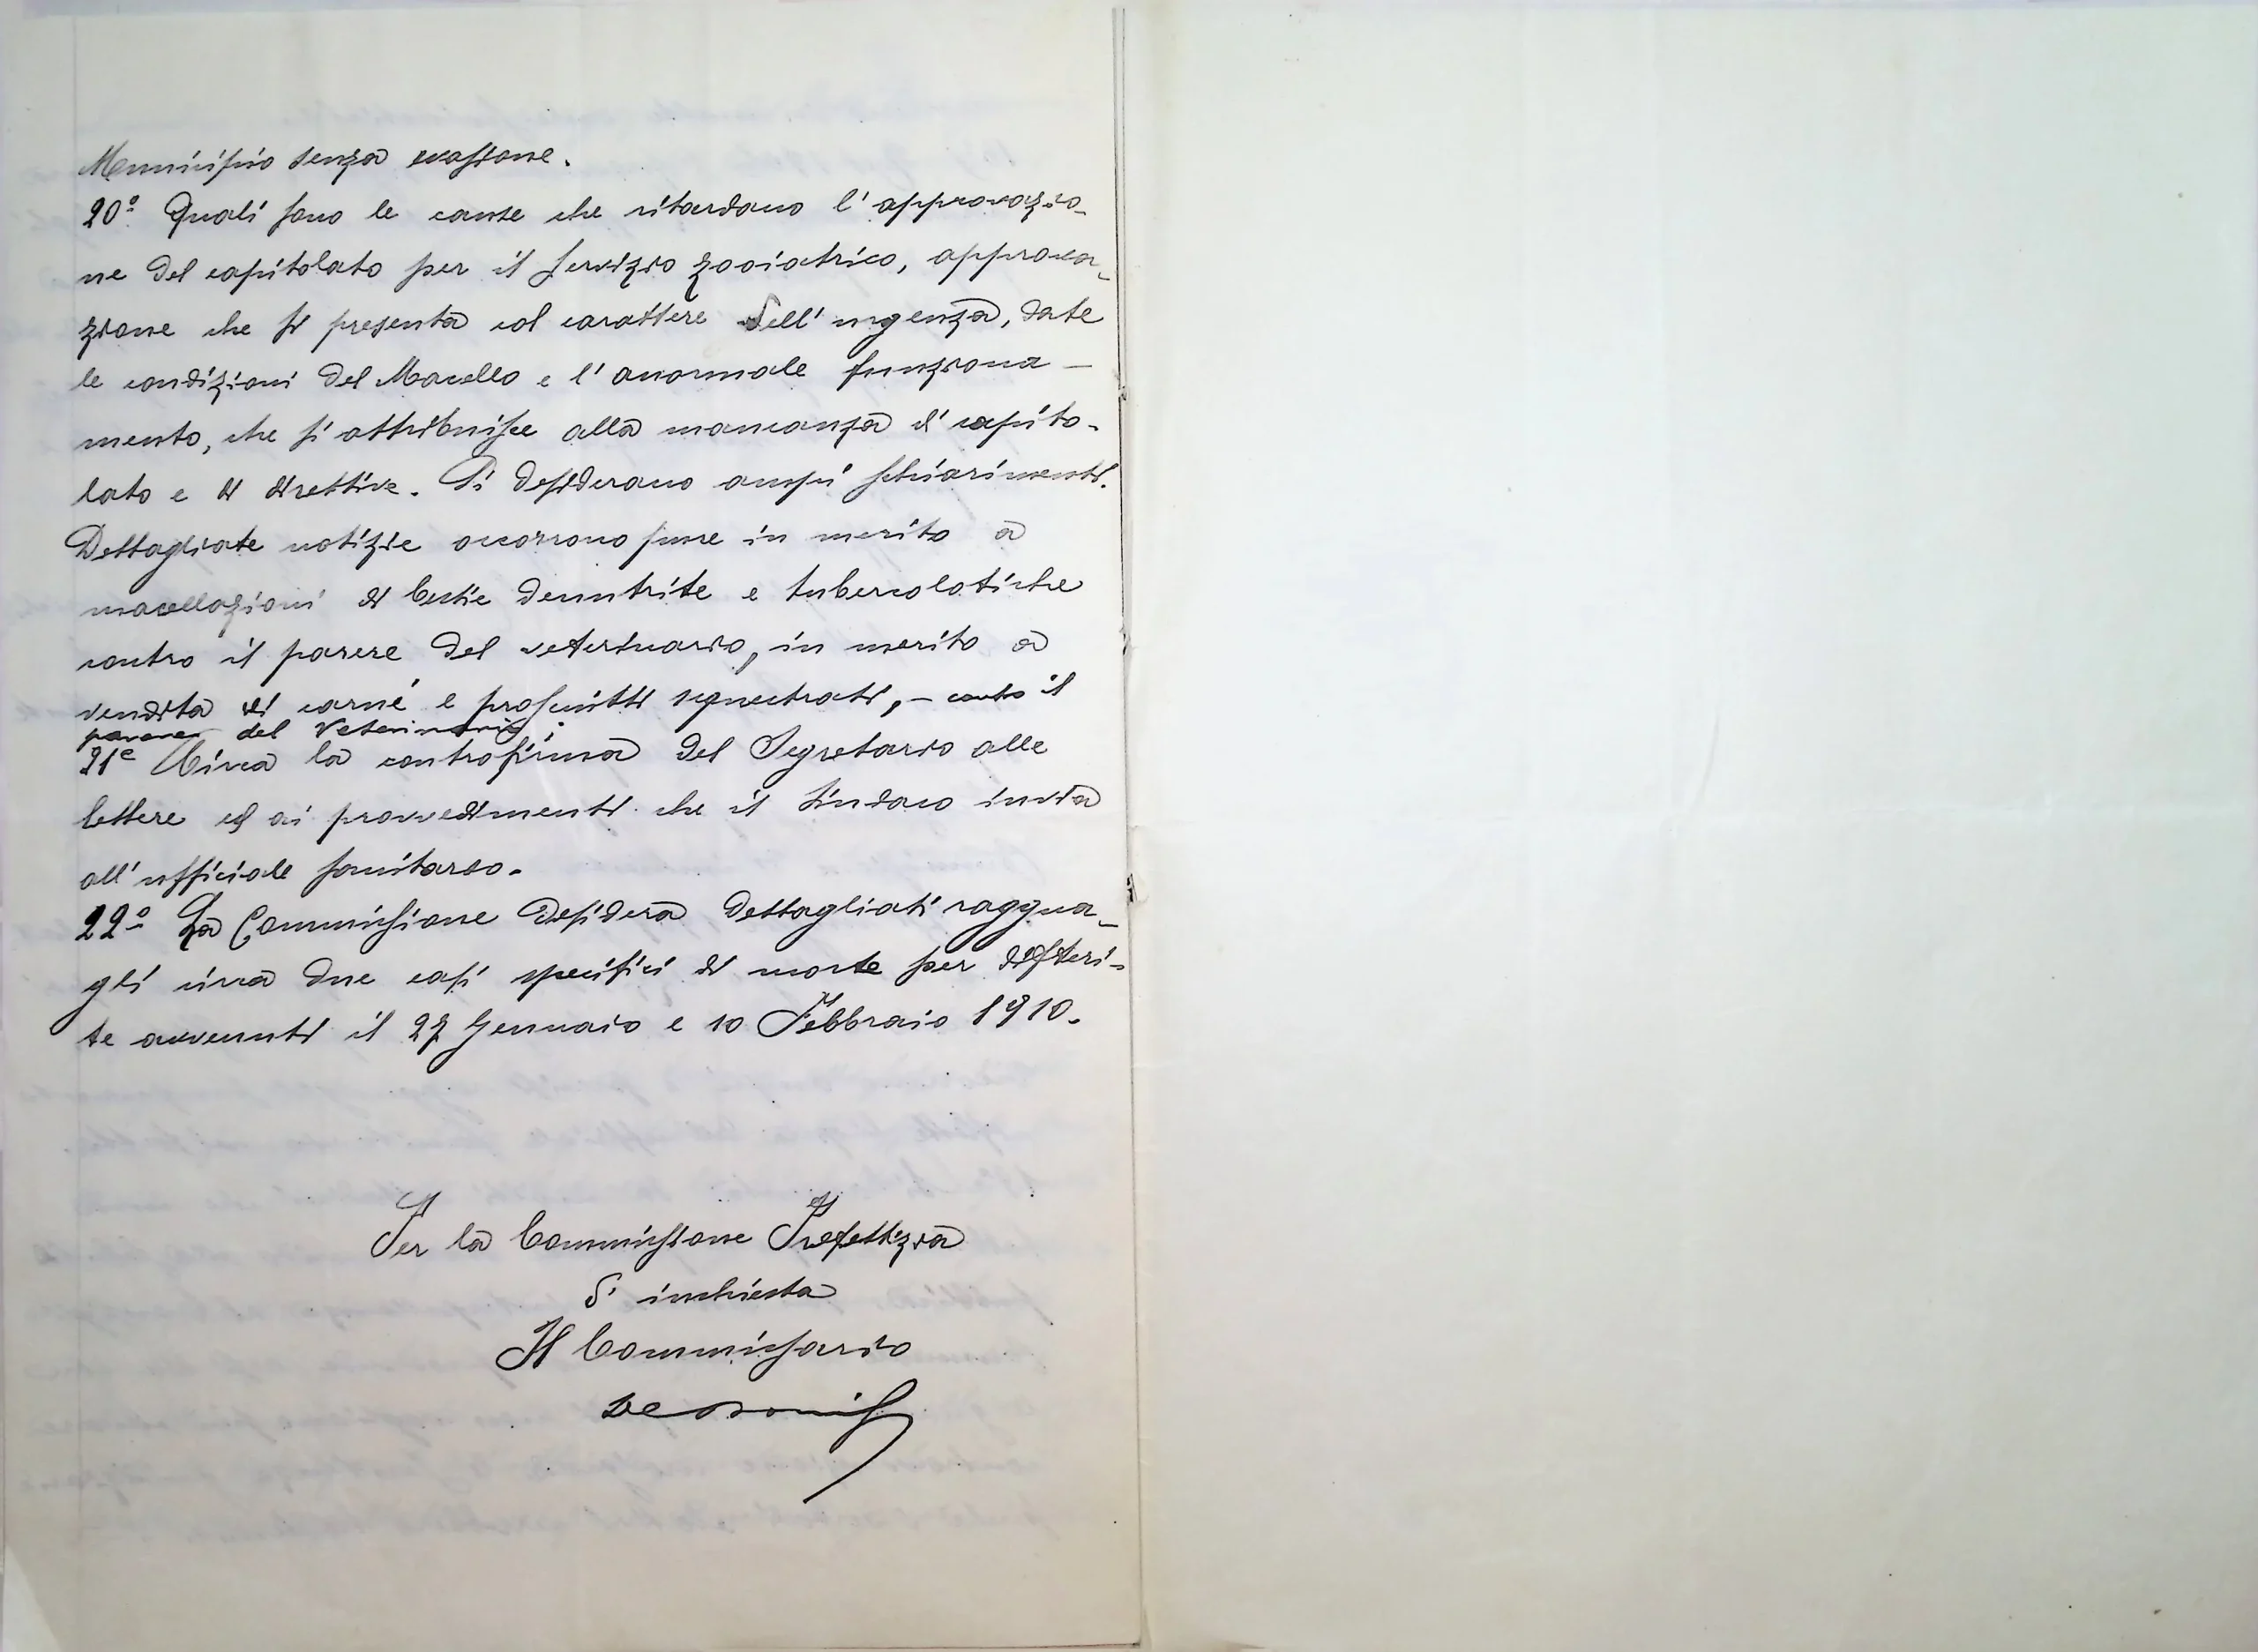 Municipio senza evasione.
20º Quali sono le cause che ritardano l'approvazio-
ne del capitolato per il servizio zooiatrico, approva-
zione che si presenta col carattere dell'urgenza, date
le condizioni del Macello e l'anormale funziona-
mento, che si attribuisce alla mancanza di capito-
lato e di direttive. Si desiderano ampi schiarimenti.
Dettagliate notizie occorrono pure in merito a
macellazioni di bestie denutrite e tubercolotiche
contro il parere del veterinario, in merito a
vendita di carni e prosciutti sequestrati, - contro il
parere del Veterinario;
21º Circa la controfirma del Segretario alle
lettere ed ai provvedimenti che il Sindaco invia
all'ufficiale sanitario.
22º La Commissione desidera dettagliati raggua-
gli circa due casi specifici di morte per difteri-
te avvenuti il 27 Gennaio e 10 Febbraio 1910.
Per la Commissione Prefettizia
d'inchiesta
Il Commissario